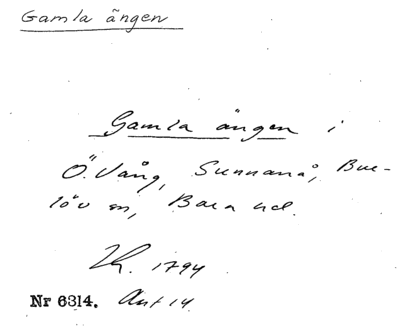 Gamla ängen
Gamla ängen i
Ö. Vång, Sunnanå, Bur-
löv sn, Bara hd.
1794
Nr 6314. Akt 14